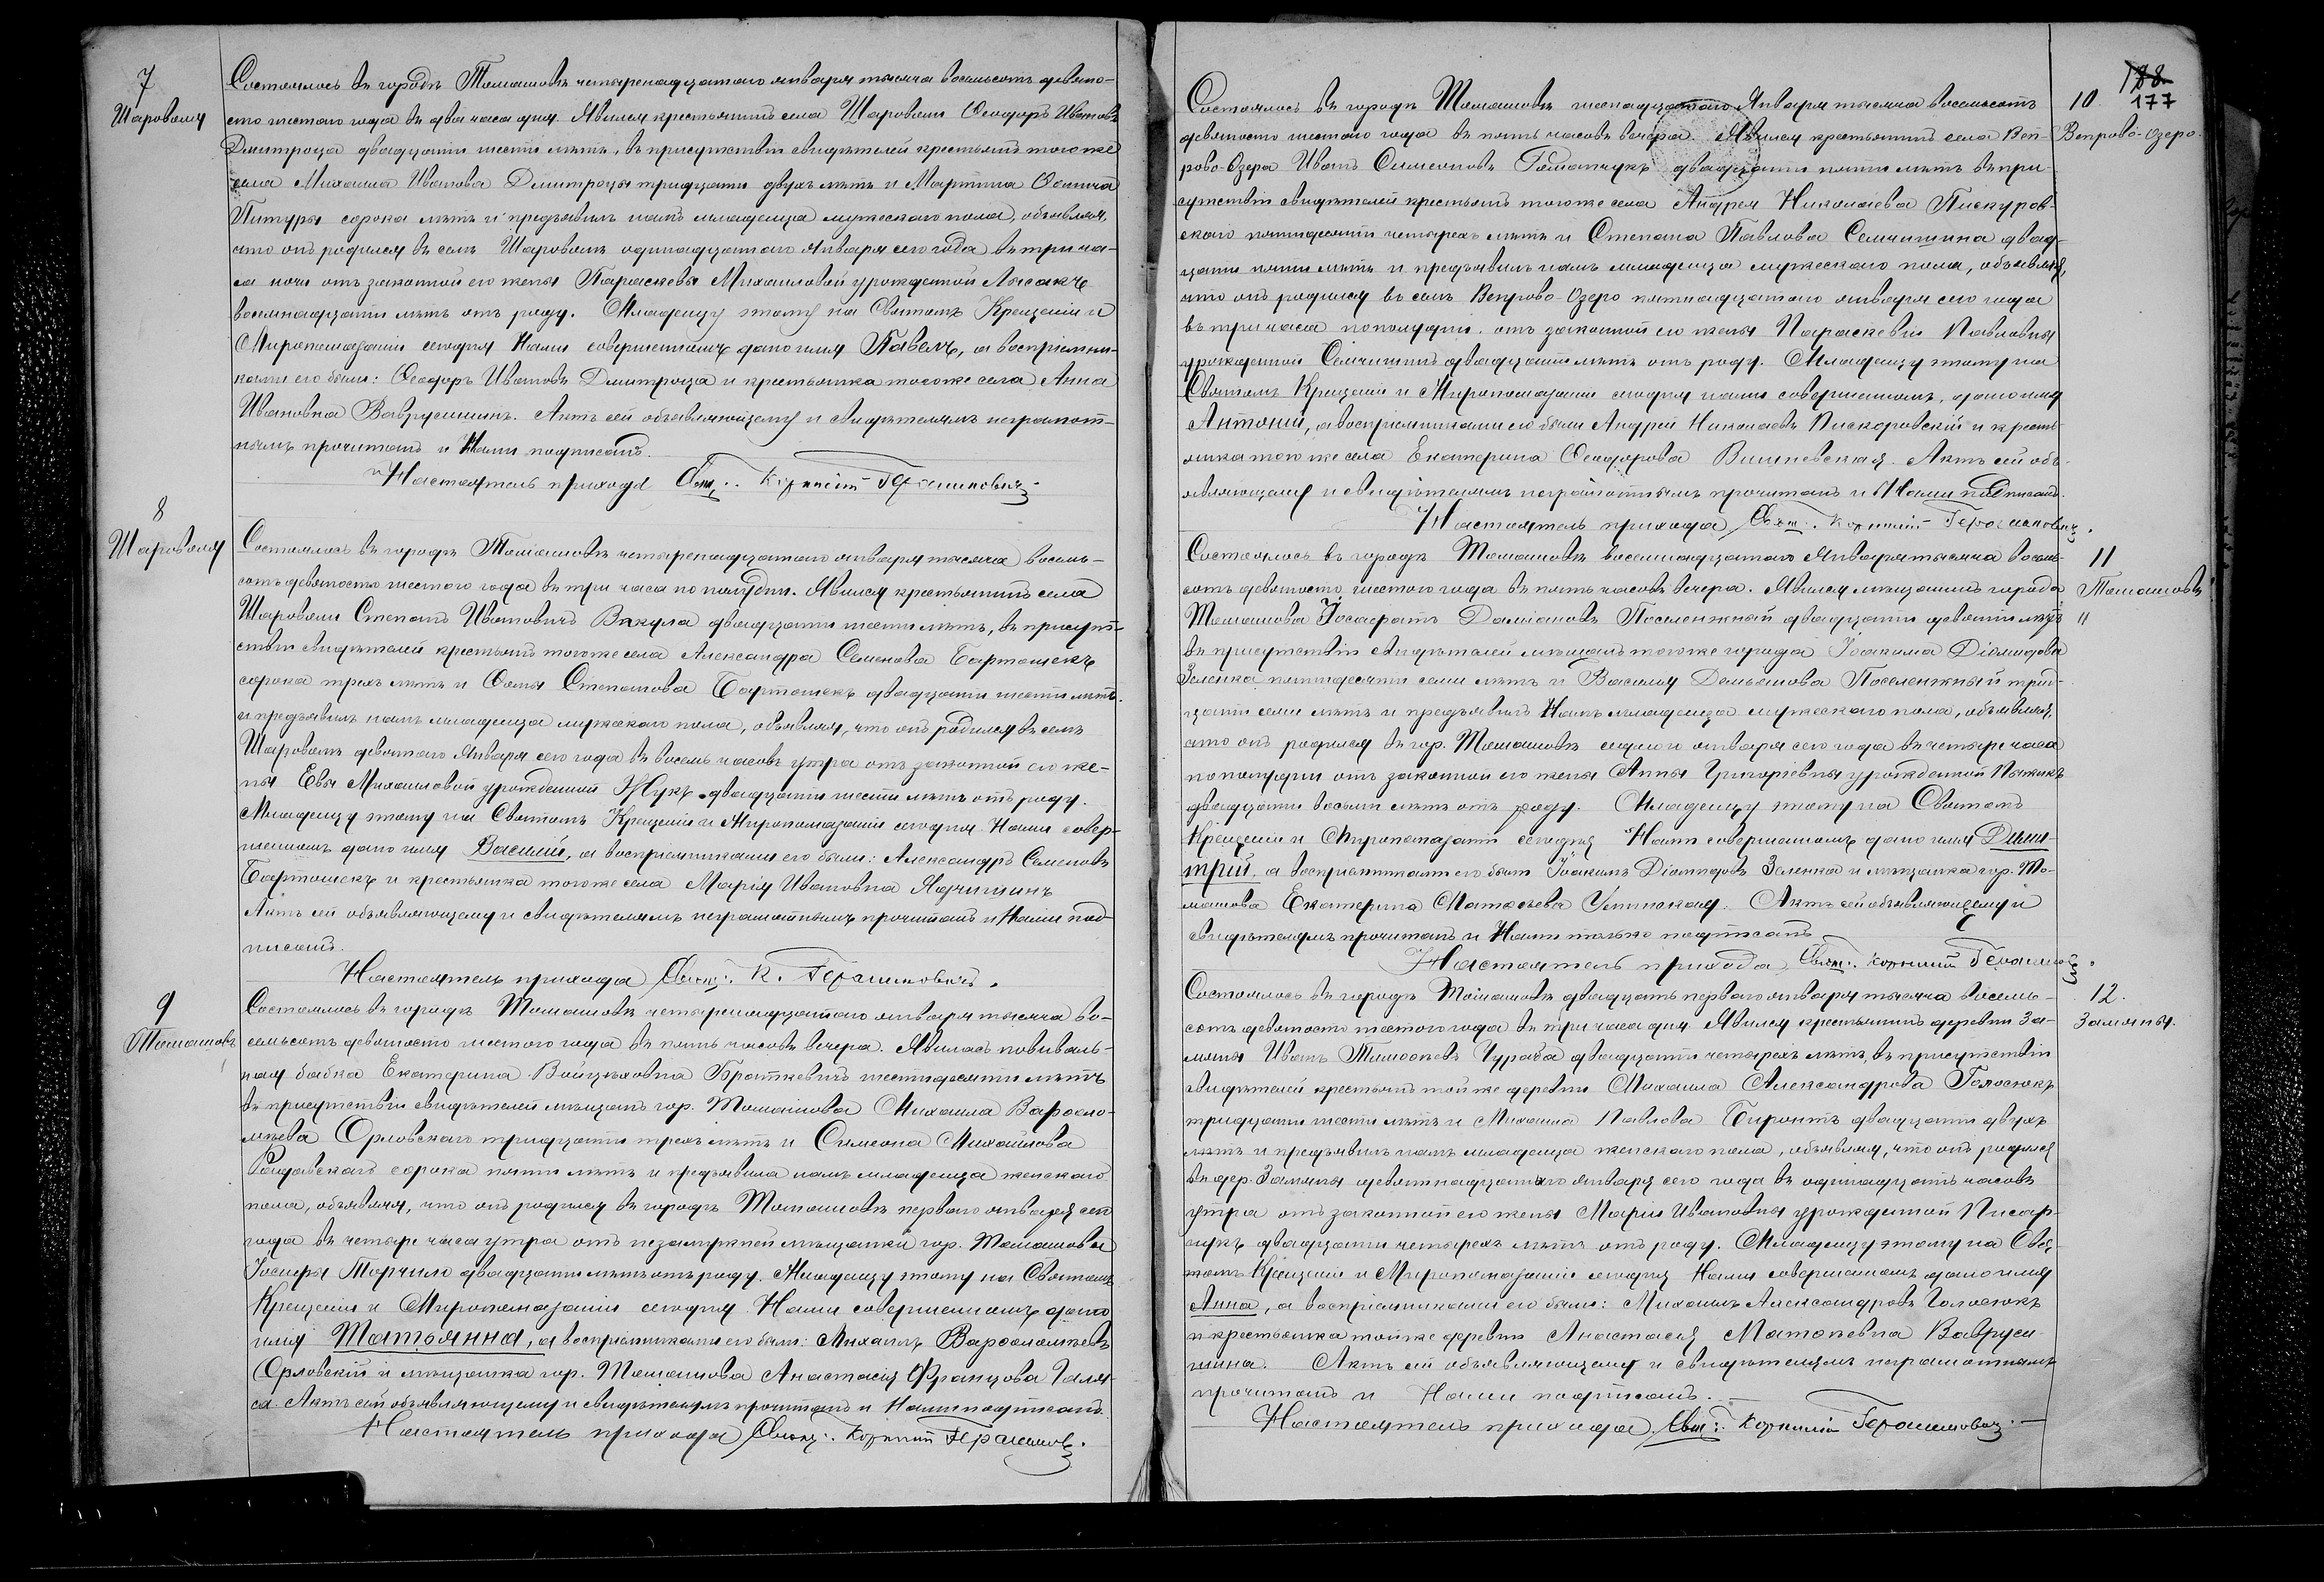 7
Шароволя
Состоялось въ городѣ Томашовѣ четыренадцатаго января тысяча восемьсотъ девяно-
сто шестого года въ два часа дня. Явился крестьянинъ села Шароволи Ѳеодоръ Ивановъ
Дмитроца двадцати шести лѣтъ, въ присутствіи свидѣтелей крестьянъ тогоже
села Михаила Иванова Дмитроцы тридцати двухъ лѣтъ и Мартина
Питуры сорока лѣтъ и предъявилъ намъ младенца мужескаго пола, объявляя,
что онъ родился въ селѣ Шароволѣ одинадцатаго января сего года въ три ча-
са ночи отъ законной его жены Параскевы Михаиловой урожденной
восемнадцати лѣтъ отъ роду. Младенцу этому на Святомъ Крещеніи и
Миропомазаніи сегодня Нами совершенномъ дано имя Павелъ, а воспріемни-
ками его были: Ѳеодоръ Ивановъ Дмитроца и крестьянка тогоже села Анна
Ивановна Ваврусишинъ. Актъ сей объявляющему и свидѣтелямъ неграмот-
нымъ прочитанъ и Нами подписанъ.
Настоятель прихода Свящ. Корнилій Герасимовичъ
8
Шароволя
Состоялось въ городѣ Томашовѣ четыренадцатаго января тысяча восемь-
сотъ девяносто шестого года въ три часа по полудни. Явился крестьянинъ села
Шароволи Степанъ Ивановичъ Вакула двадцати шести лѣтъ, въ присут-
ствіи свидѣтелей крестьянъ тогоже села Александра Семенова Бартошекъ
сорока трехъ лѣтъ и Ѳомы Степанова Бартошекъ двадцати шести лѣтъ.
и предъявилъ намъ младенца мужскаго пола, объявляя, что онъ родился въ селѣ
Шароволѣ девятаго Января сего года въ восемь часовъ утра отъ законной его же-
ны Евы Михаиловой урожденной Жукъ двадцати шести лѣтъ отъ роду.
Младенцу этому на Святомъ Крещеніи и Миропомазаніи сегодня Нами совер-
шенномъ дано имя Василій, а воспріемниками его были: Александръ Семеновъ
Бартошекъ и крестьянка тогоже села Марія Ивановна Ядчишинъ
Актъ сей объявляющему и свидѣтелямъ неграмотнымъ прочитанъ и Нами под-
писанъ.
Настоятель прихода Свящ. К. Герасимовичъ.
9
Томашовъ
Состоялось въ городѣ Томашовѣ четыренадцатаго января тысяча во-
семьсотъ девяносто шестого года въ пять часовъ вечера. Явилась повиваль-
ная бабка Екатерина Войцѣховна Браткевичъ шестидесяти лѣтъ
въ присутствіи свидѣтелей мѣщанъ гор. Томашова Михаила Варѳоло-
мѣева Орловскаго тридцати трехъ лѣтъ и Симеона Михайлова
сорока пяти лѣтъ и предъявила намъ младенца женскаго
пола, объявляя, что онъ родился въ городѣ Томашовѣ перваго января сего
года въ четыре часа утра отъ незамужней мѣщанки гор. Томашова
Торчило двадцати лѣтъ отъ роду. Младенцу этому на Святомъ
Крещеніи и Миропомазаніи сегодня Нами совершенномъ дано
имя Татьянна, а воспріемниками его были: Михаилъ Варѳоломѣевъ
Орловскій и мѣщанка гор. Томашова Анастасія Францова Галя-
са. Актъ сей объявляющему и свидѣтелямъ прочитанъ и Нами подписанъ.
Настоятель прихода Свящ. Корнилій Герасимов.
188
177
10
Вепрово-Озеро.
Состоялось въ городѣ Томашовѣ шестнадцатаго Января тысяча восемьсотъ
девяносто шестого года въ пять часовъ вечера. Явился крестьянинъ села Веп-
рово-Озера Иванъ Симеоновъ двадцати пяти лѣтъ въ при-
сутствіи свидѣтелей крестьянъ тогоже села Андрея Николаева Пискуров-
скаго пятидесяти четырехъ лѣтъ и Степана Павлова Семчишина двад-
цати пяти лѣтъ и предъявилъ намъ младенца мужескаго пола, объявляя,
что онъ родился въ селѣ Вепрово-Озеро пятнадцатаго января сего года
въ три часа пополудни отъ законной его жены Параскевіи Павловны
урожденной Семчишинъ двадцати лѣтъ отъ роду. Младенцу этому на
Святомъ Крещеніи и Миропомазаніи сегодня нами совершенномъ, дано имя
Антоній, а воспріемниками его были Андрей Николаевъ Пискоровскій и кресть-
янка тогоже села Екатерина Ѳеодорова Вишневская. Актъ сей объ-
являющему и свидѣтелямъ неграмотнымъ прочитанъ и Нами подписанъ.
Настоятель прихода Свящ. Корнилій Герасимовичъ.
11
Томашовъ
11
Состоялось въ городѣ Томашовѣ восемнадцатаго Января тысяча восемь-
сотъ девяносто шестого года въ пять часовъ вечера. Явился мѣщанинъ города
Томашова Іосафатъ Даміановъ Поселенжный двадцати девяти лѣтъ
въ присутствіи свидѣтелей мѣщанъ тогоже города Іоакима Діомидова
Зеленка пятидесяти семи лѣтъ и Василія Демьянова Поселенжный трид-
цати семи лѣтъ и предъявилъ Намъ младенца мужескаго пола, объявляя,
что онъ родился въ гор. Томашовѣ седмого января сего года въ четыре часа
пополудни отъ законной его жены Анны Григоріевны урожденной
двадцати восьми лѣтъ отъ роду. Младенцу этому на Святомъ
Крещеніи и Миропомазаніи сегодня Нами совершенномъ дано имя Дими-
трій, а воспріемниками его были Іоакимъ Діомидовъ Зеленка и мѣщанка гор. То-
машова Екатерина Матѳеева. Актъ сей объявляющему и
свидѣтелямъ прочитанъ и Нами только подписанъ
Настоятель прихода Свящ. Корнилій Герасимо
12.
Замяны.
Состоялось въ городѣ Томашовѣ двадцать перваго января тысяча восемь-
сотъ девяносто шестого года въ три часа дня. Явился крестьянинъ деревни За-
мяны Иванъ Тимоѳеевъ Чураба двадцати четырехъ лѣтъ, въ присутствіи
свидѣтелей крестьянъ тойже деревни Михаила Александрова Голосюкъ
тридцати шести лѣтъ и Михаила Павлова Биронтъ двадцати двухъ
лѣтъ и предъявилъ намъ младенца женскаго пола, объявляя, что онъ родился
въ дер. Замяны девятнадцатаго января сего года въ одинадцать часовъ
утра отъ законной его жены Маріи Ивановны урожденной Писар-
чукъ двадцати четырехъ лѣтъ отъ роду. Младенцу этому на Свя-
томъ Крещеніи и Миропомазаніи сегодня Нами совершенномъ дано имя
Анна, а воспріемниками его были: Михаилъ Александровъ Голосюкъ
и крестьянка тойже деревни Анастасія Матѳеевна Ваврусе-
шина. Актъ сей объявляющему и свидѣтелямъ неграмотнымъ
прочитанъ и Нами подписанъ.
Настоятель прихода Свящ: Корнилій Герасимович.